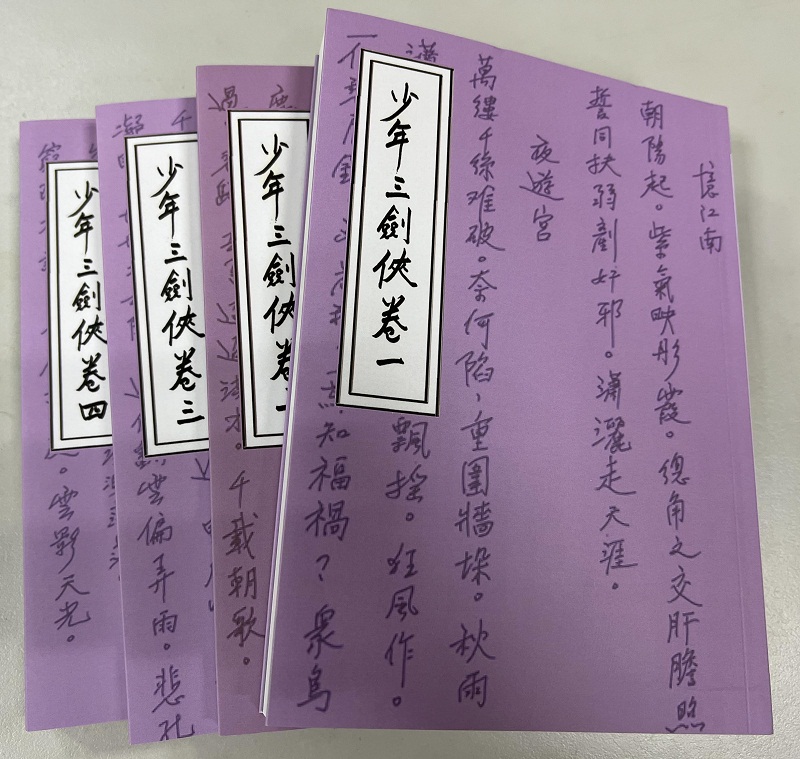 憶江南
朝陽起。紫氣映彤霞。總角之交肝膽照
誓同扶弱剷奸邪。瀟灑走天涯。
夜遊宮
萬縷千絲难破。奈何陷，重圍牆垛。秋雨
飄搖。狂風作。
知福禍？衆鳥
少年三劍俠卷一
少年三劍俠卷
千載朝歌。
少年三劍俠卷三
雲偏弄雨。悲
少年三劍俠卷四
雲影天光。